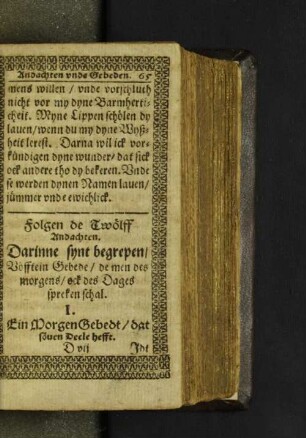 Andachten vnde Gebeden. 65
mens willen / vnde vorschluth
nicht vor my dyne Barmherti-
cheit. Myne Lippen schölen dy
lauen / wenn du my dyne Wyß-
heit lerest. Darna wil ick vor-
kündigen dyne wunder / dat sick
ock andere tho dy bekeren. Vnde
se werden dynen Namen lauen /
jümmer vnde ewichlick.
Folgen de Twölff
Andachten.
Darinne synt begrepen /
Vöfftein Gebede / de men des
morgens / ock des Dages
spreken schal.
I.
Ein MorgenGebedt / dat
söuen Deele hefft.
D vij Idt